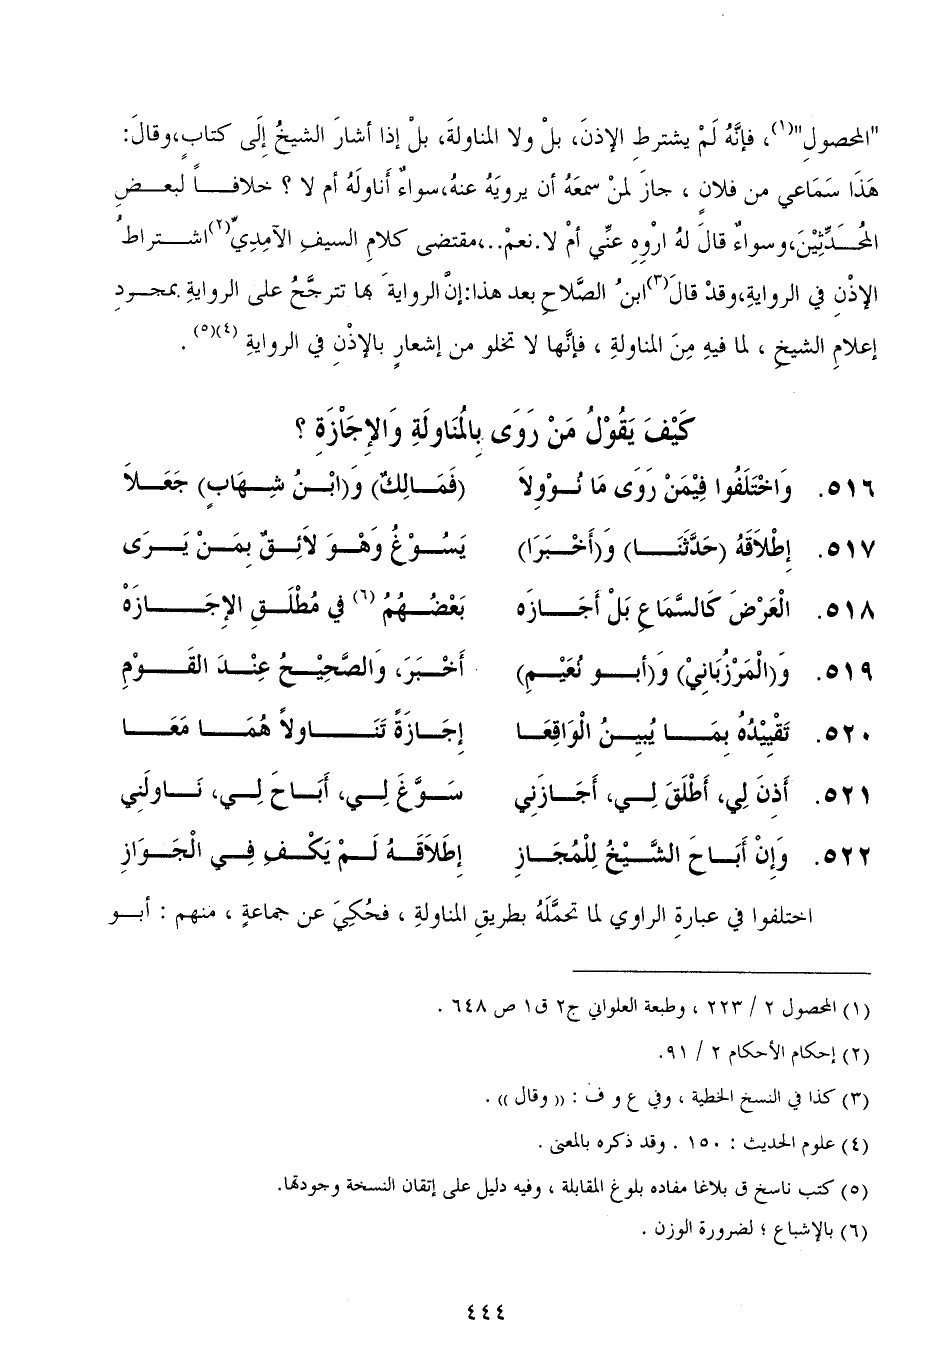 "المحصول"(١)، فإنَّهُ لَمْ يشترطِ الإذنَ، بلْ ولا المناولةَ، بلْ إذا أشارَ الشيخُ إلَى كتابٍ،وقالَ:
هَذَا سَمَاعي من فلانٍ ، جازَ لمنْ سمعَهُ أن يرويَهُ عنهُ،سواءٌ أناولَهُ أم لا ؟ خلافاً لبعضِ
المُحَدِّثِيْنَ،وسواءٌ قالَ لهُ اروِهِ عنِّي أمْ لا.نعمْ..،مقتضى كلامِ السيفِ الآمِدِيِّ(٢)اشتراطُ
الإذْنِ في الروايةِ،وقدْ قالَ(٣)ابنُ الصَّلاحِ بعد هذا:إنَّ الروايةَ بها تترجَّحُ على الروايةِ بمجردِ
إعلامِ الشيخِ ، لما فيهِ مِنَ المناولةِ ، فإنَّها لا تخلو من إشعارٍ بالإذْنِ في الروايةِ (٤)(٥) .
كَيْفَ يَقُوْلُ مَنْ رَوَى بِالْمُنَاولَةِ وَالإِجَاْزَةِ ؟
٥١٦. وَاخْتَلَفُوا فِيْمَنْ رَوَى مَا نُوْوِلاَ (فَمَالِكٌ) وَ(ابْنُ شِهَابٍ) جَعَلاَ
٥١٧. إِطْلاَقَهُ (حَدَّثَنَا) وَ(أَخْبَرَا) يَسُوْغُ وَهْوَ لاَئِقٌ بِمَنْ يَرَى
٥١٨. الْعَرْضَ كَالسَّمَاعِ بَلْ أَجَازَه بَعْضُهُمُ (٦) في مُطْلَقِ الإِجَازَهْ
٥١٩. وَ(الْمَرْزُبَانِيْ) وَ(أبو نُعَيْمِ) أَخْبَرَ، وَالصَّحِيْحُ عِنْدَ القَوْمِ
٥٢٠. تَقْيِيْدُهُ بِمَا يُبِينُ الْوَاقِعَا إِجَازَةً تَنَاولاً هُمَا مَعَا
٥٢١. أَذِنَ لِي، أَطْلَقَ لِي، أَجَازَنِي سَوَّغَ لِي، أَبَاحَ لِي، نَاولَنِي
٥٢٢. وَإِنْ أَبَاحَ الشَّيْخُ لِلْمُجَازِ إِطَلاَقَهُ لَمْ يَكْفِ فِي الْجَوَازِ
اختلفوا في عبارةِ الراوي لما تحمَّلَهُ بطريقِ المناولةِ ، فحُكِيَ عن جماعةٍ ، منهم : أبو
(١) المحصول ٢ / ٢٢٣ ، وطبعة العلواني ج٢ ق١ ص ٦٤٨ .
(٢) إحكام الأحكام ٢ / ٩١.
(٣) كذا في النسخ الخطية ، وفي ع و ف : (( وقال )) .
(٤) علوم الحديث : ١٥٠ . وقد ذكره بالمعنى .
(٥) كتب ناسخ ق بلاغا مفاده بلوغ المقابلة ، وفيه دليل على إتقان النسخة وجودتها.
(٦) بالإشباع ؛ لضرورة الوزن .
٤٤٤